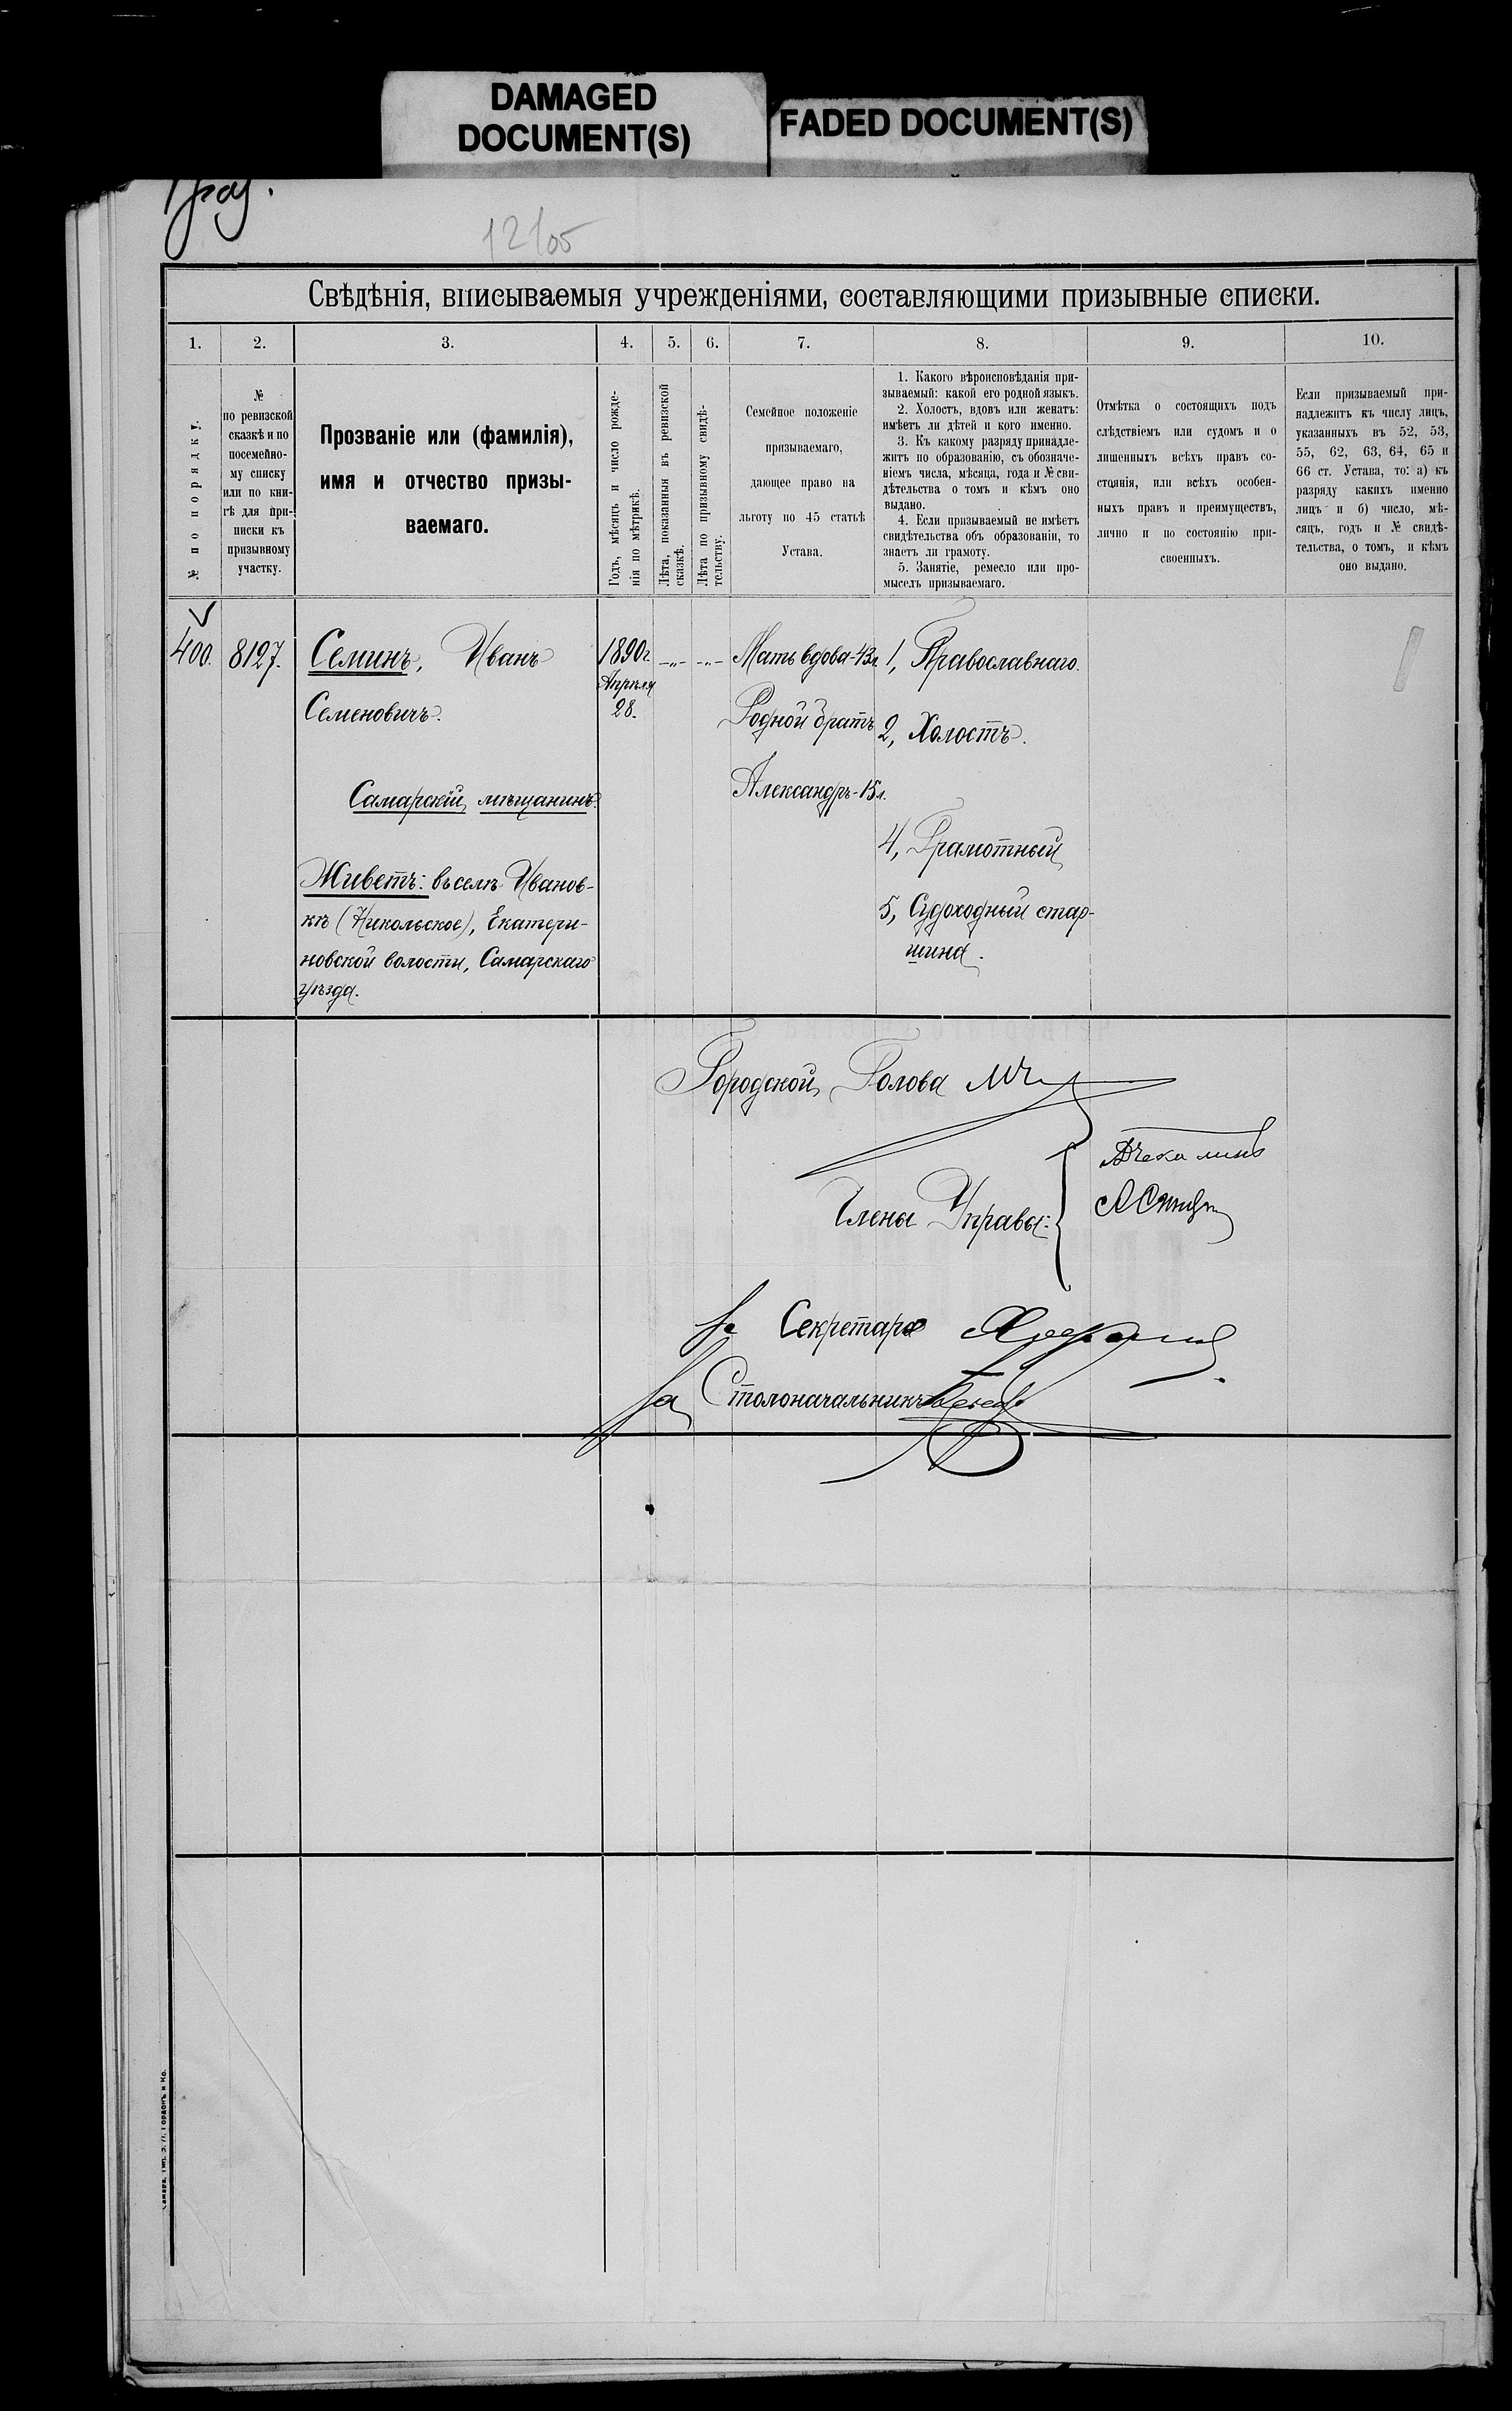 DAMAGED
DOCUMENT(S)
FADED DOCUMENT(S)
12/05
Свѣдѣнія, вписываемыя учрежденіями, составляющими призывные списки.
1. 2. 3. 4. 5. 6. 7. 8. 9. 10.
№ по порядку.
№
по ревизской
сказкѣ и по
посемейно-
му списку
или по кни-
гѣ для при-
писки къ
призывному
участку.
Прозваніе или (фамилія),
имя и отчество призы-
ваемаго.
Годъ, мѣсяцъ и число рожде-
нія по мѣтрикѣ.
Лѣта, показанныя въ ревизской
сказкѣ.
Лѣта по призывному свидѣ-
тельству.
Семейное положеніе
призываемаго,
дающее право на
льготу по 45 статьѣ
Устава.
1. Какого вѣроисповѣданія при-
зываемый: какой его родной языкъ.
2. Холостъ, вдовъ или женатъ:
имѣетъ ли дѣтей и кого именно.
3. Къ какому разряду принадле-
житъ по образованію, съ обозначе-
ніемъ числа, мѣсяца, года и № сви-
дѣтельства о томъ и кѣмъ оно
выдано.
4. Если призываемый не имѣетъ
свидѣтельства объ образованіи, то
знаетъ ли грамоту.
5. Занятіе, ремесло или про-
мыселъ призываемаго.
Отмѣтка о состоящихъ подъ
слѣдствіемъ или судомъ и о
лишенныхъ всѣхъ правъ со-
стоянія, или всѣхъ особен-
ныхъ правъ и преимуществъ,
лично и по состоянію при-
своенныхъ.
Если призываемый при-
надлежитъ къ числу лицъ,
указанныхъ въ 52, 53,
55, 62, 63, 64, 65 и
66 ст. Устава, то: а) къ
разряду какихъ именно
лицъ и б) число, мѣ-
сяцъ, годъ и № свидѣ-
тельства, о томъ, и кѣмъ
оно выдано.
400. 8127.
Семинъ, Иванъ
Семеновичъ.
Самарскій мѣщанинъ.
Живетъ: въ селѣ Иванов-
кѣ (Никольское), Екатери-
новской волости, Самарскаго
уѣзда.
1890г.
Апрѣля
28.
-„- -„-
Мать вдова-43л.
Родной братъ
Александръ-15л.
1, Православнаго.
2, Холостъ.
4, Грамотный
5, Судоходный стар-
шина.
Городской Голова
Члены Управы:
Секретаря
За Столоначальникъ
Самара, Тип. Э. Л. Гордонъ и Ко.